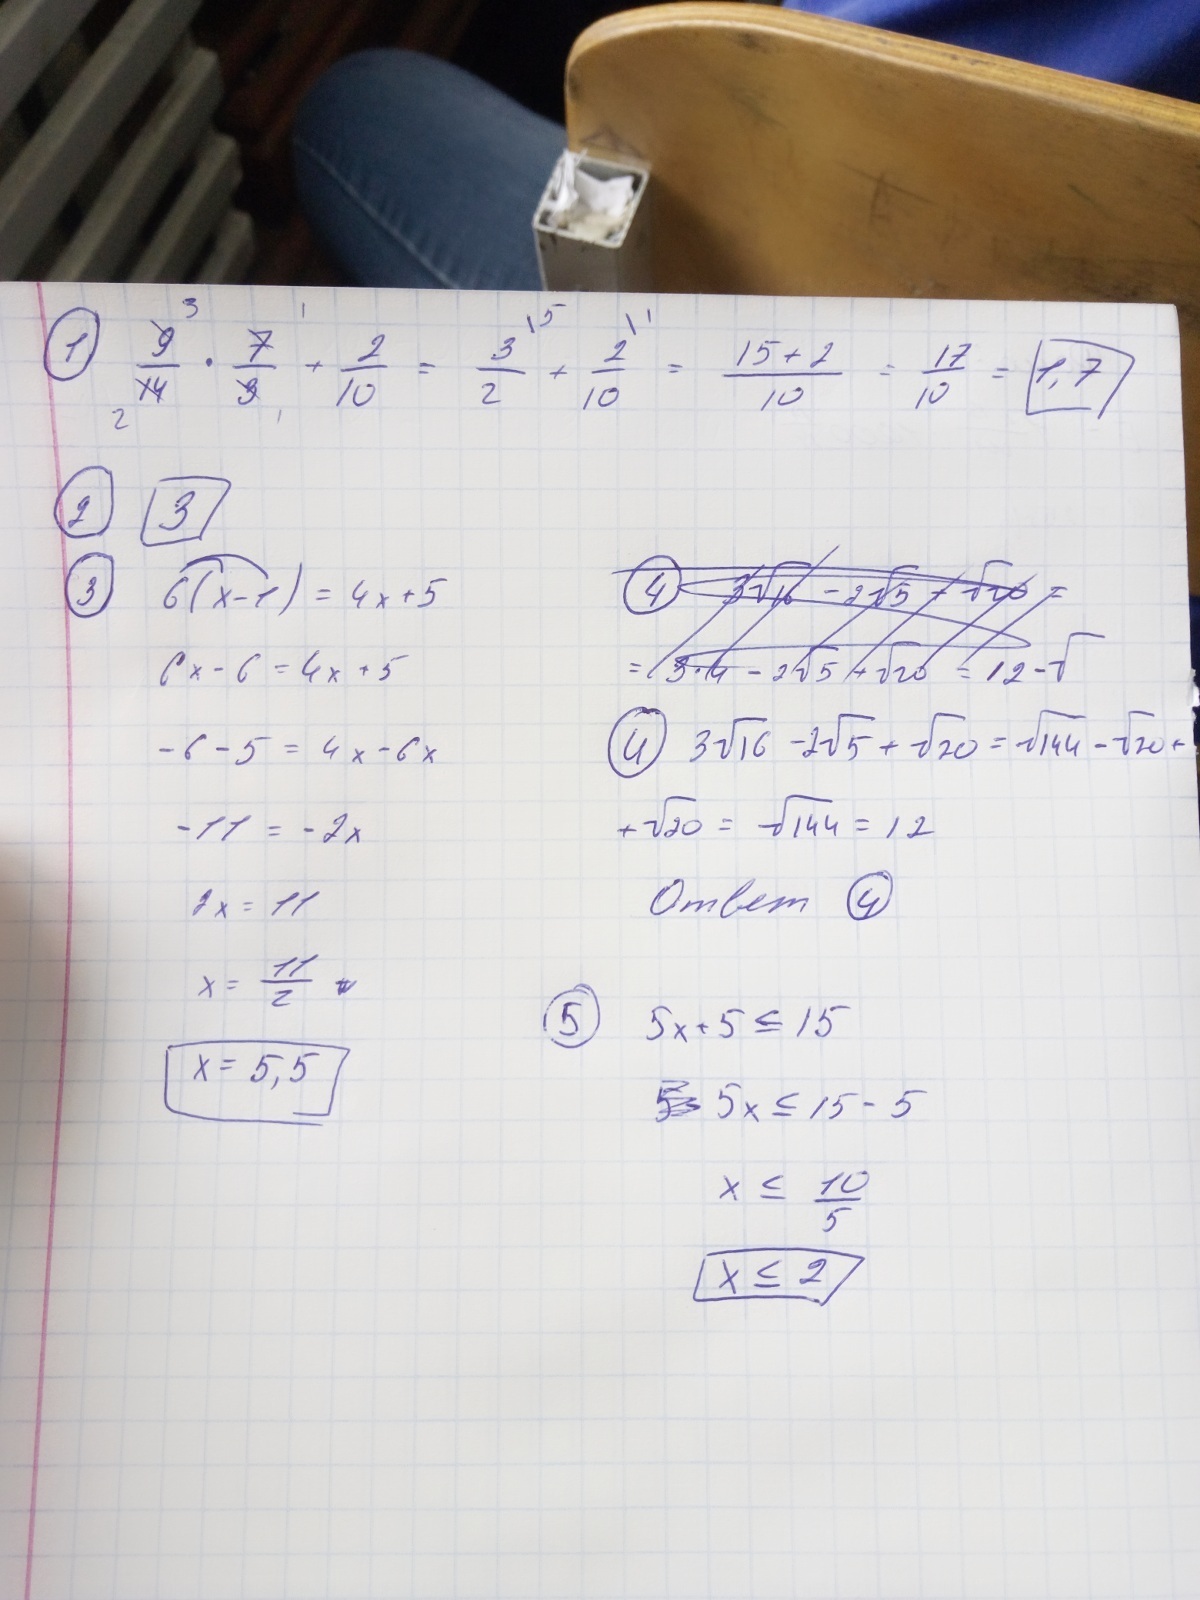 ① 9/14 · 7/3 + 2/10 = 3/2 + 2/10 = (15+2)/10 = 17/10 = 1,7
② 3
③ 6(x-1) = 4x+5
6x-6 = 4x+5
-6-5 = 4x-6x
-11 = -2x
2x = 11
x = 11/2
x = 5,5
④ 3√16 - 2√5 + √20 =
= 3·4 - 2√5 + √20 = 12-√
④ 3√16 - 2√5 + √20 = √144 - √20 +
+√20 = √144 = 12
Ответ ④
⑤ 5x+5 ≤ 15
5x ≤ 15-5
x ≤ 10/5
x ≤ 2